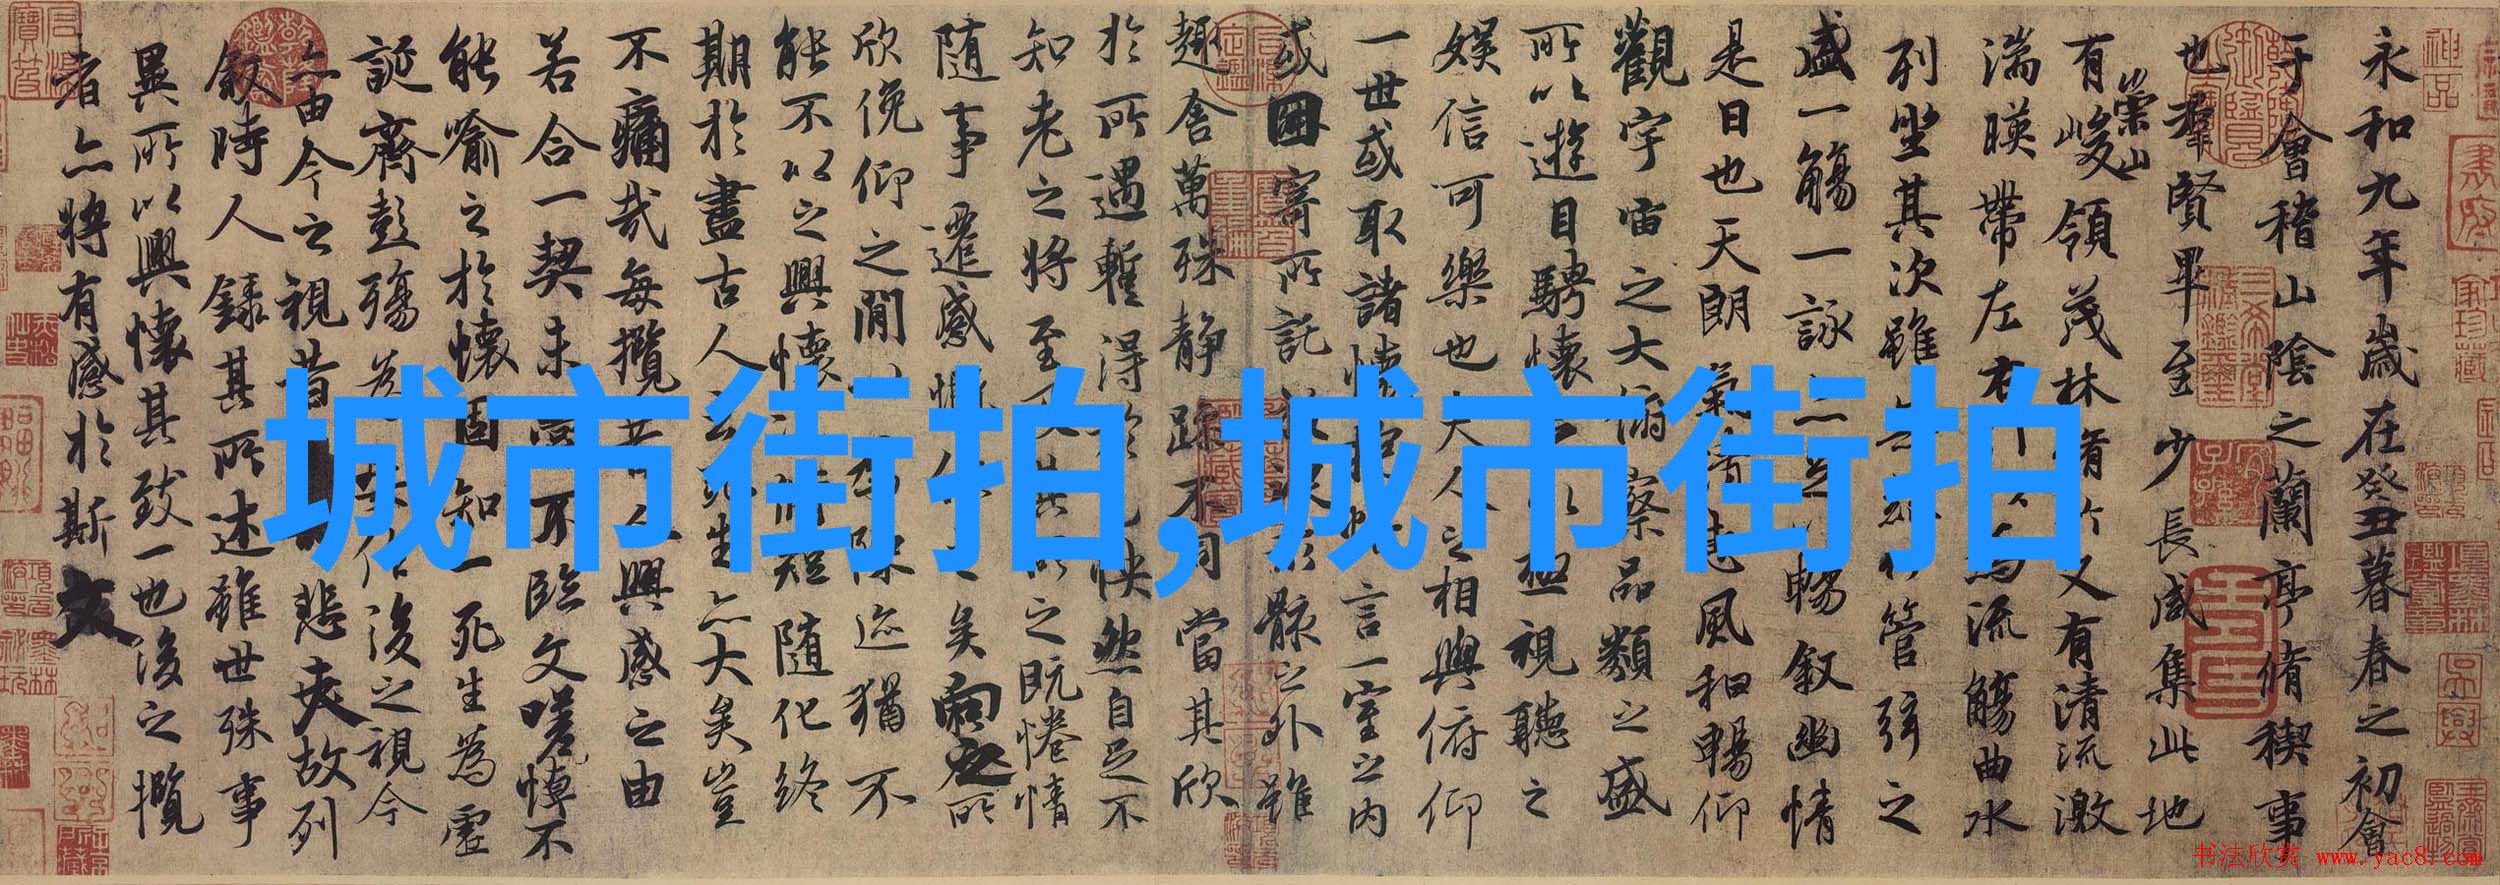 永和九年歲在癸丑暮春之初會
于會稽山陰之蘭亭脩稧事
也羣賢畢至少長咸集此地
有崇山峻領茂林脩竹又有清流激
湍暎帶左右引以為流觴曲水
列坐其次雖無絲竹管弦之
盛一觴一詠亦足以暢叙幽情
是日也天朗氣清惠風和暢仰
觀宇宙之大俯察品類之盛
所以遊目騁懷足以極視聽之
娛信可樂也夫人之相與俯仰
一世或取諸懷抱悟言一室之內
或因寄所託放浪形骸之外雖
趣舍萬殊静躁不同當其欣
於所遇暫得於己怏然自足不
知老之將至及其所之既惓情
随事遷感慨係之矣向之所
欣俛仰之閒以為陳迹猶不
能不以之興懷況脩短随化終
期於盡古人云死生亦大矣豈
不痛哉每攬昔人興感之由
若合一契未嘗不臨文嗟悼不
能喻之於懷固知一死生為虛
誕齊彭殤為妄作後之視今
亦由今之視昔悲夫故列
叙時人錄其所述雖世殊事
異所以興懷其致一也後之攬
者亦將有感於斯文
城市街拍,城市街拍
书法欣赏 www.yac8.com